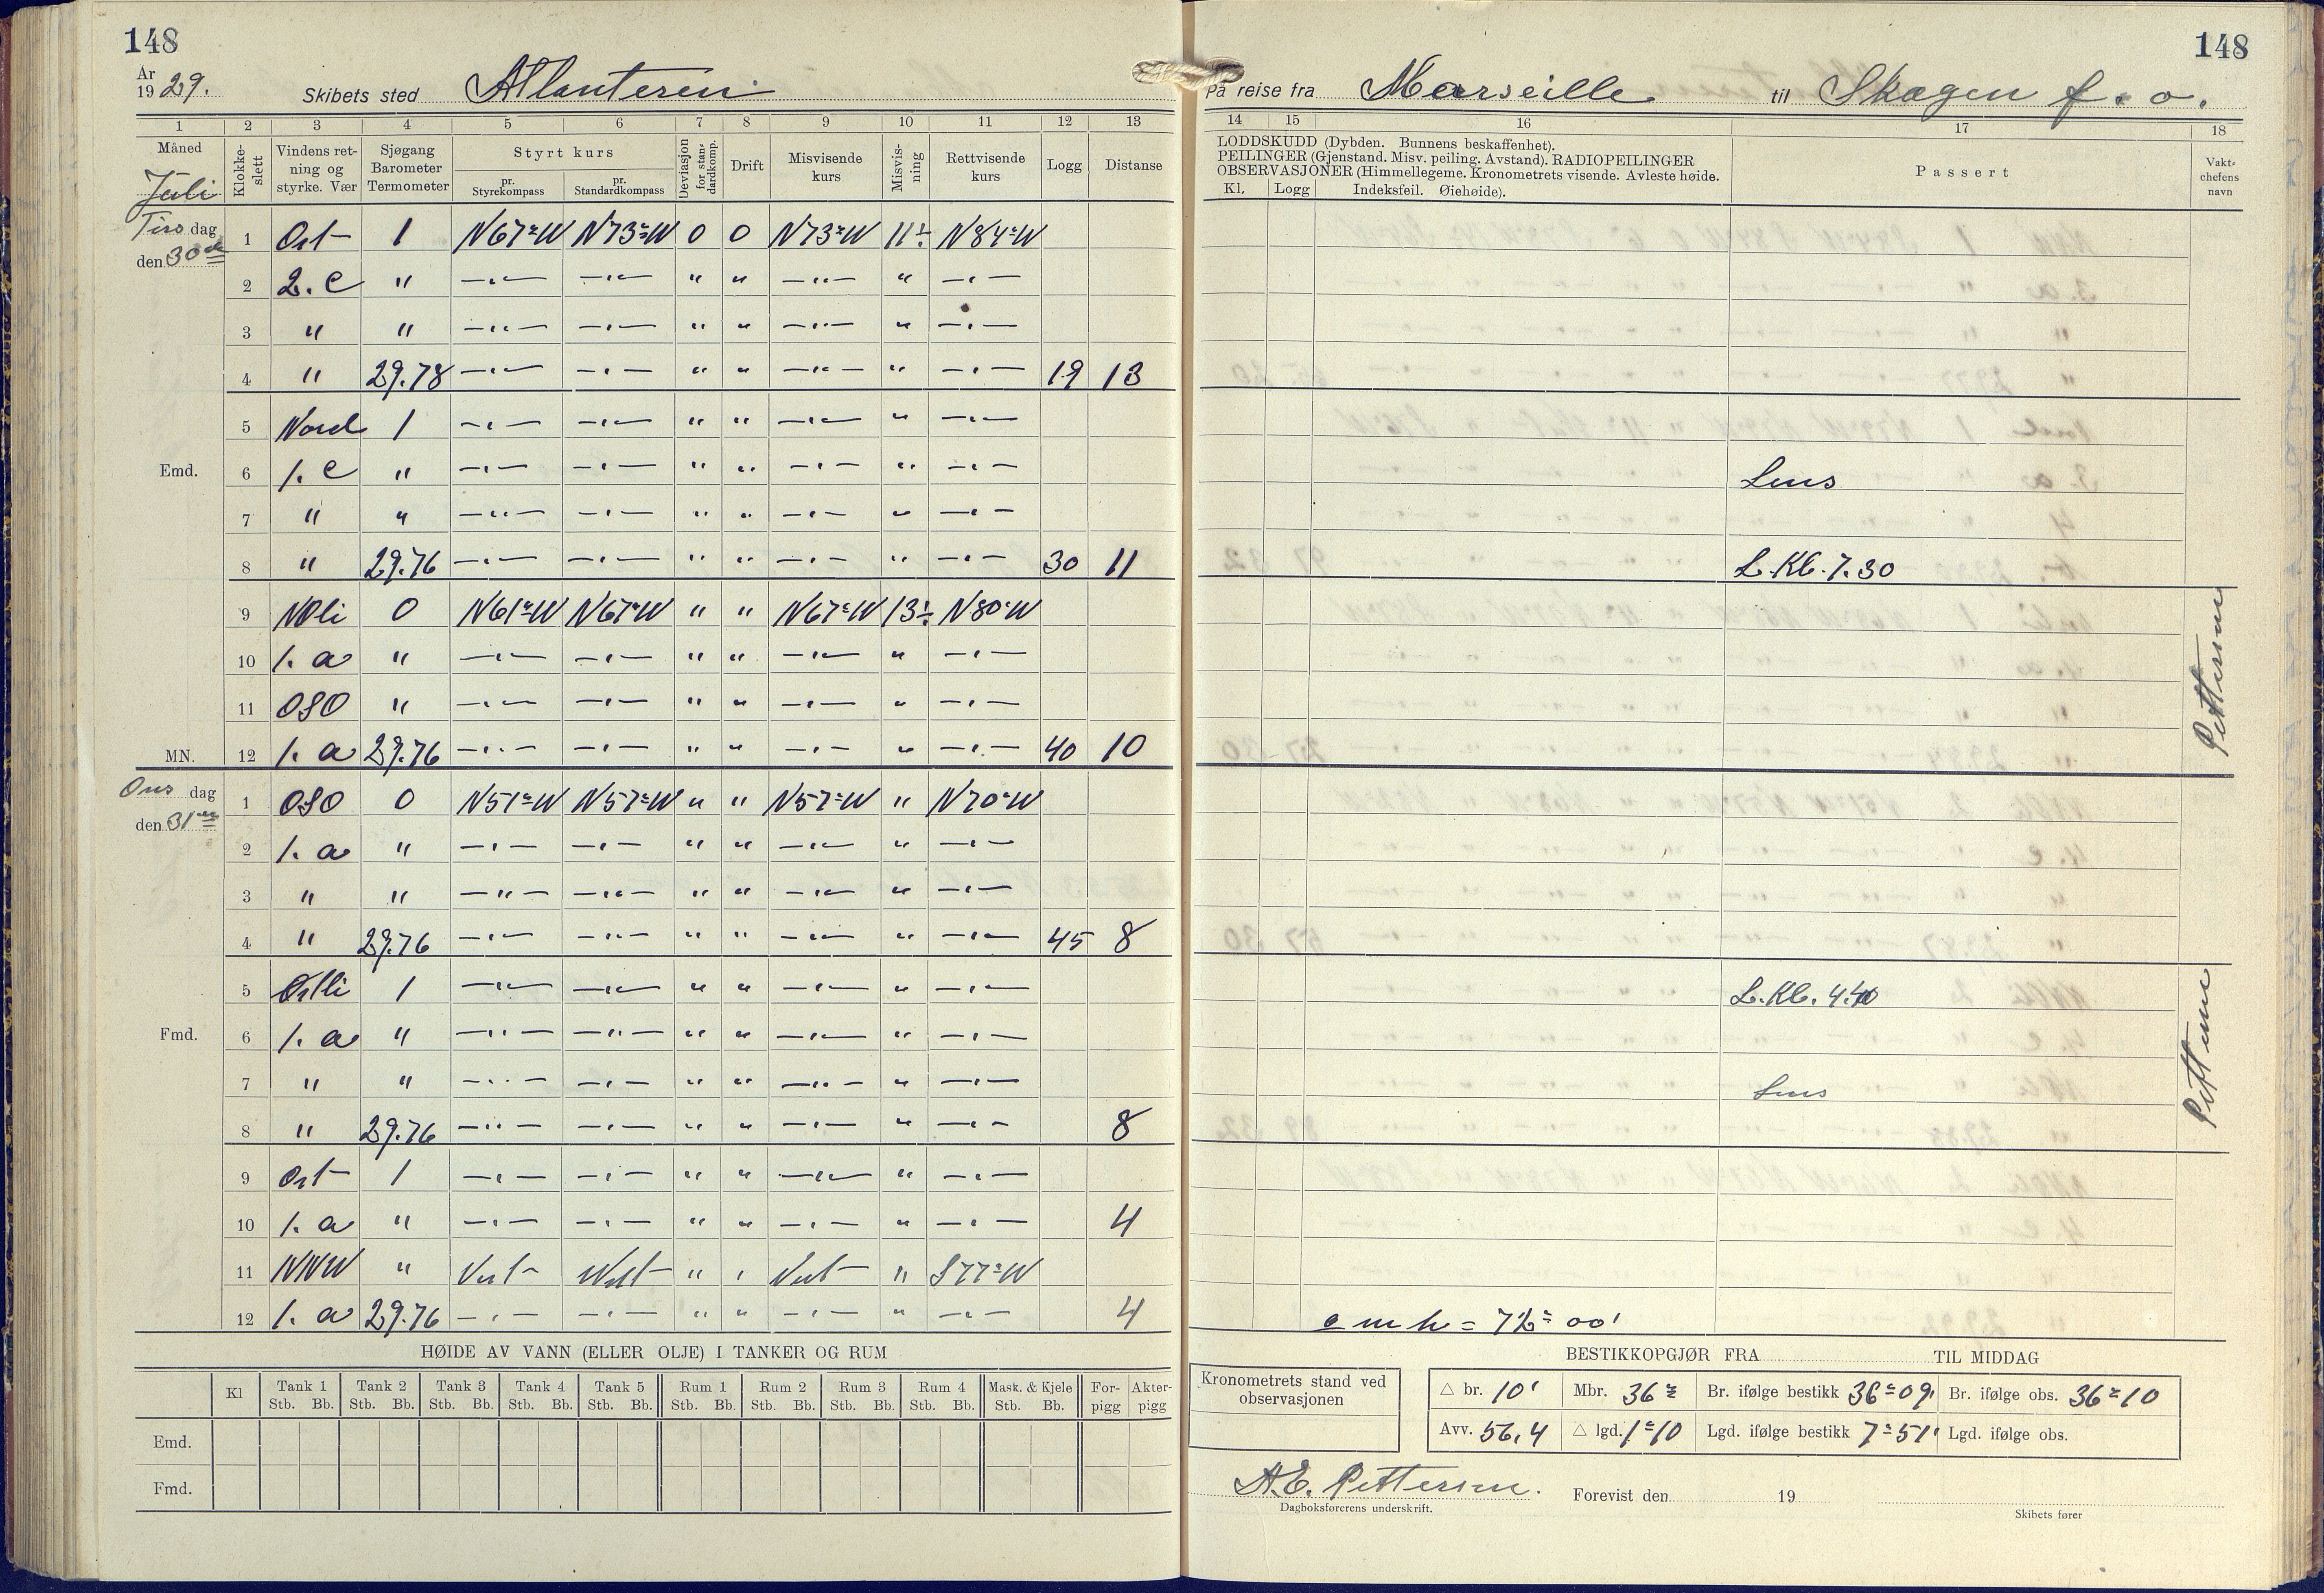 148
År 1929. Skibets sted Atlanteren
1 2 3 4 5 6 7 8 9 10 11 12 13
Måned Juli
Klokke-slett
Vindens ret-ning og styrke. Vær
Sjøgang Barometer Termometer
Styrt kurs
pr. Styrekompass
pr. Standardkompass
Deviasjon for stan-dardkomp.
Drift
Misvisende kurs
Misvis-ning
Rettvisende kurs
Logg
Distanse
Tirs dag den 30
1 Ost 1 N67°W N73°W 0 0 N73°W 11÷ N84°W
2 2. c " —"— —"— " " —"— " —"—
3 " " —"— —"— " " —"— " —"—
4 " 29.78 —"— —"— " " —"— " —"— 19 13
5 Nord 1 —"— —"— " " —"— " —"—
Emd. 6 1. c " —"— —"— " " —"— " —"—
7 " " —"— —"— " " —"— " —"—
8 " 29.76 —"— —"— " " —"— " —"— 30 11
9 NOli 0 N61°W N67°W " " N67°W 13÷ N80°W
10 1. a " —"— —"— " " —"— " —"—
11 OSO " —"— —"— " " —"— " —"—
MN. 12 1. a 29.76 —"— —"— " " —"— " —"— 40 10
Ons dag den 31
1 OSO 0 N51°W N57°W " " N57°W " N70°W
2 1. a " —"— —"— " " —"— " —"—
3 " " —"— —"— " " —"— " —"—
4 " 29.76 —"— —"— " " —"— " —"— 45 8
5 Østli 1 —"— —"— " " —"— " —"—
Fmd. 6 1. a " —"— —"— " " —"— " —"—
7 " " —"— —"— " " —"— " —"—
8 " 29.76 —"— —"— " " —"— " —"— 8
9 Ost 1 —"— —"— " " —"— " —"—
10 1. a " —"— —"— " " —"— " —"— 4
11 NNW " Vest West " " Vest " S77°W
12 1. a 29.76 —"— —"— " " —"— " —"— 4
HØIDE AV VANN (ELLER OLJE) I TANKER OG RUM
Kl Tank 1 Tank 2 Tank 3 Tank 4 Tank 5 Rum 1 Rum 2 Rum 3 Rum 4 Mask. & Kjele For-pigg Akter-pigg
Stb. Bb. Stb. Bb. Stb. Bb. Stb. Bb. Stb. Bb. Stb. Bb. Stb. Bb. Stb. Bb. Stb. Bb. Stb. Bb.
Emd.
Fmd.
148
På reise fra Marseille til Skagen f. o.
14 15 16 17 18
LODDSKUDD (Dybden. Bunnens beskaffenhet).
PEILINGER (Gjenstand. Misv. peiling. Avstand). RADIOPEILINGER
OBSERVASJONER (Himmellegeme. Kronometrets visende. Avleste høide.
Kl. Logg Indeksfeil. Øiehøide).
Passert
Vakt-chefens navn
Lens
L. Kl. 7.30
Pettersen
L. Kl. 4.40
Pettersen
Lens
BESTIKKOPGJØR FRA TIL MIDDAG
Kronometrets stand ved observasjonen
△ br. 10' Mbr. 36° Br. ifølge bestikk 36°09' Br. ifølge obs. 36°10
Avv. 56,4 △ lgd. 1°10 Lgd. ifølge bestikk 7°51' Lgd. ifølge obs.
A.E. Pettersen.
Dagboksførerens underskrift.
Forevist den 19
Skibets fører